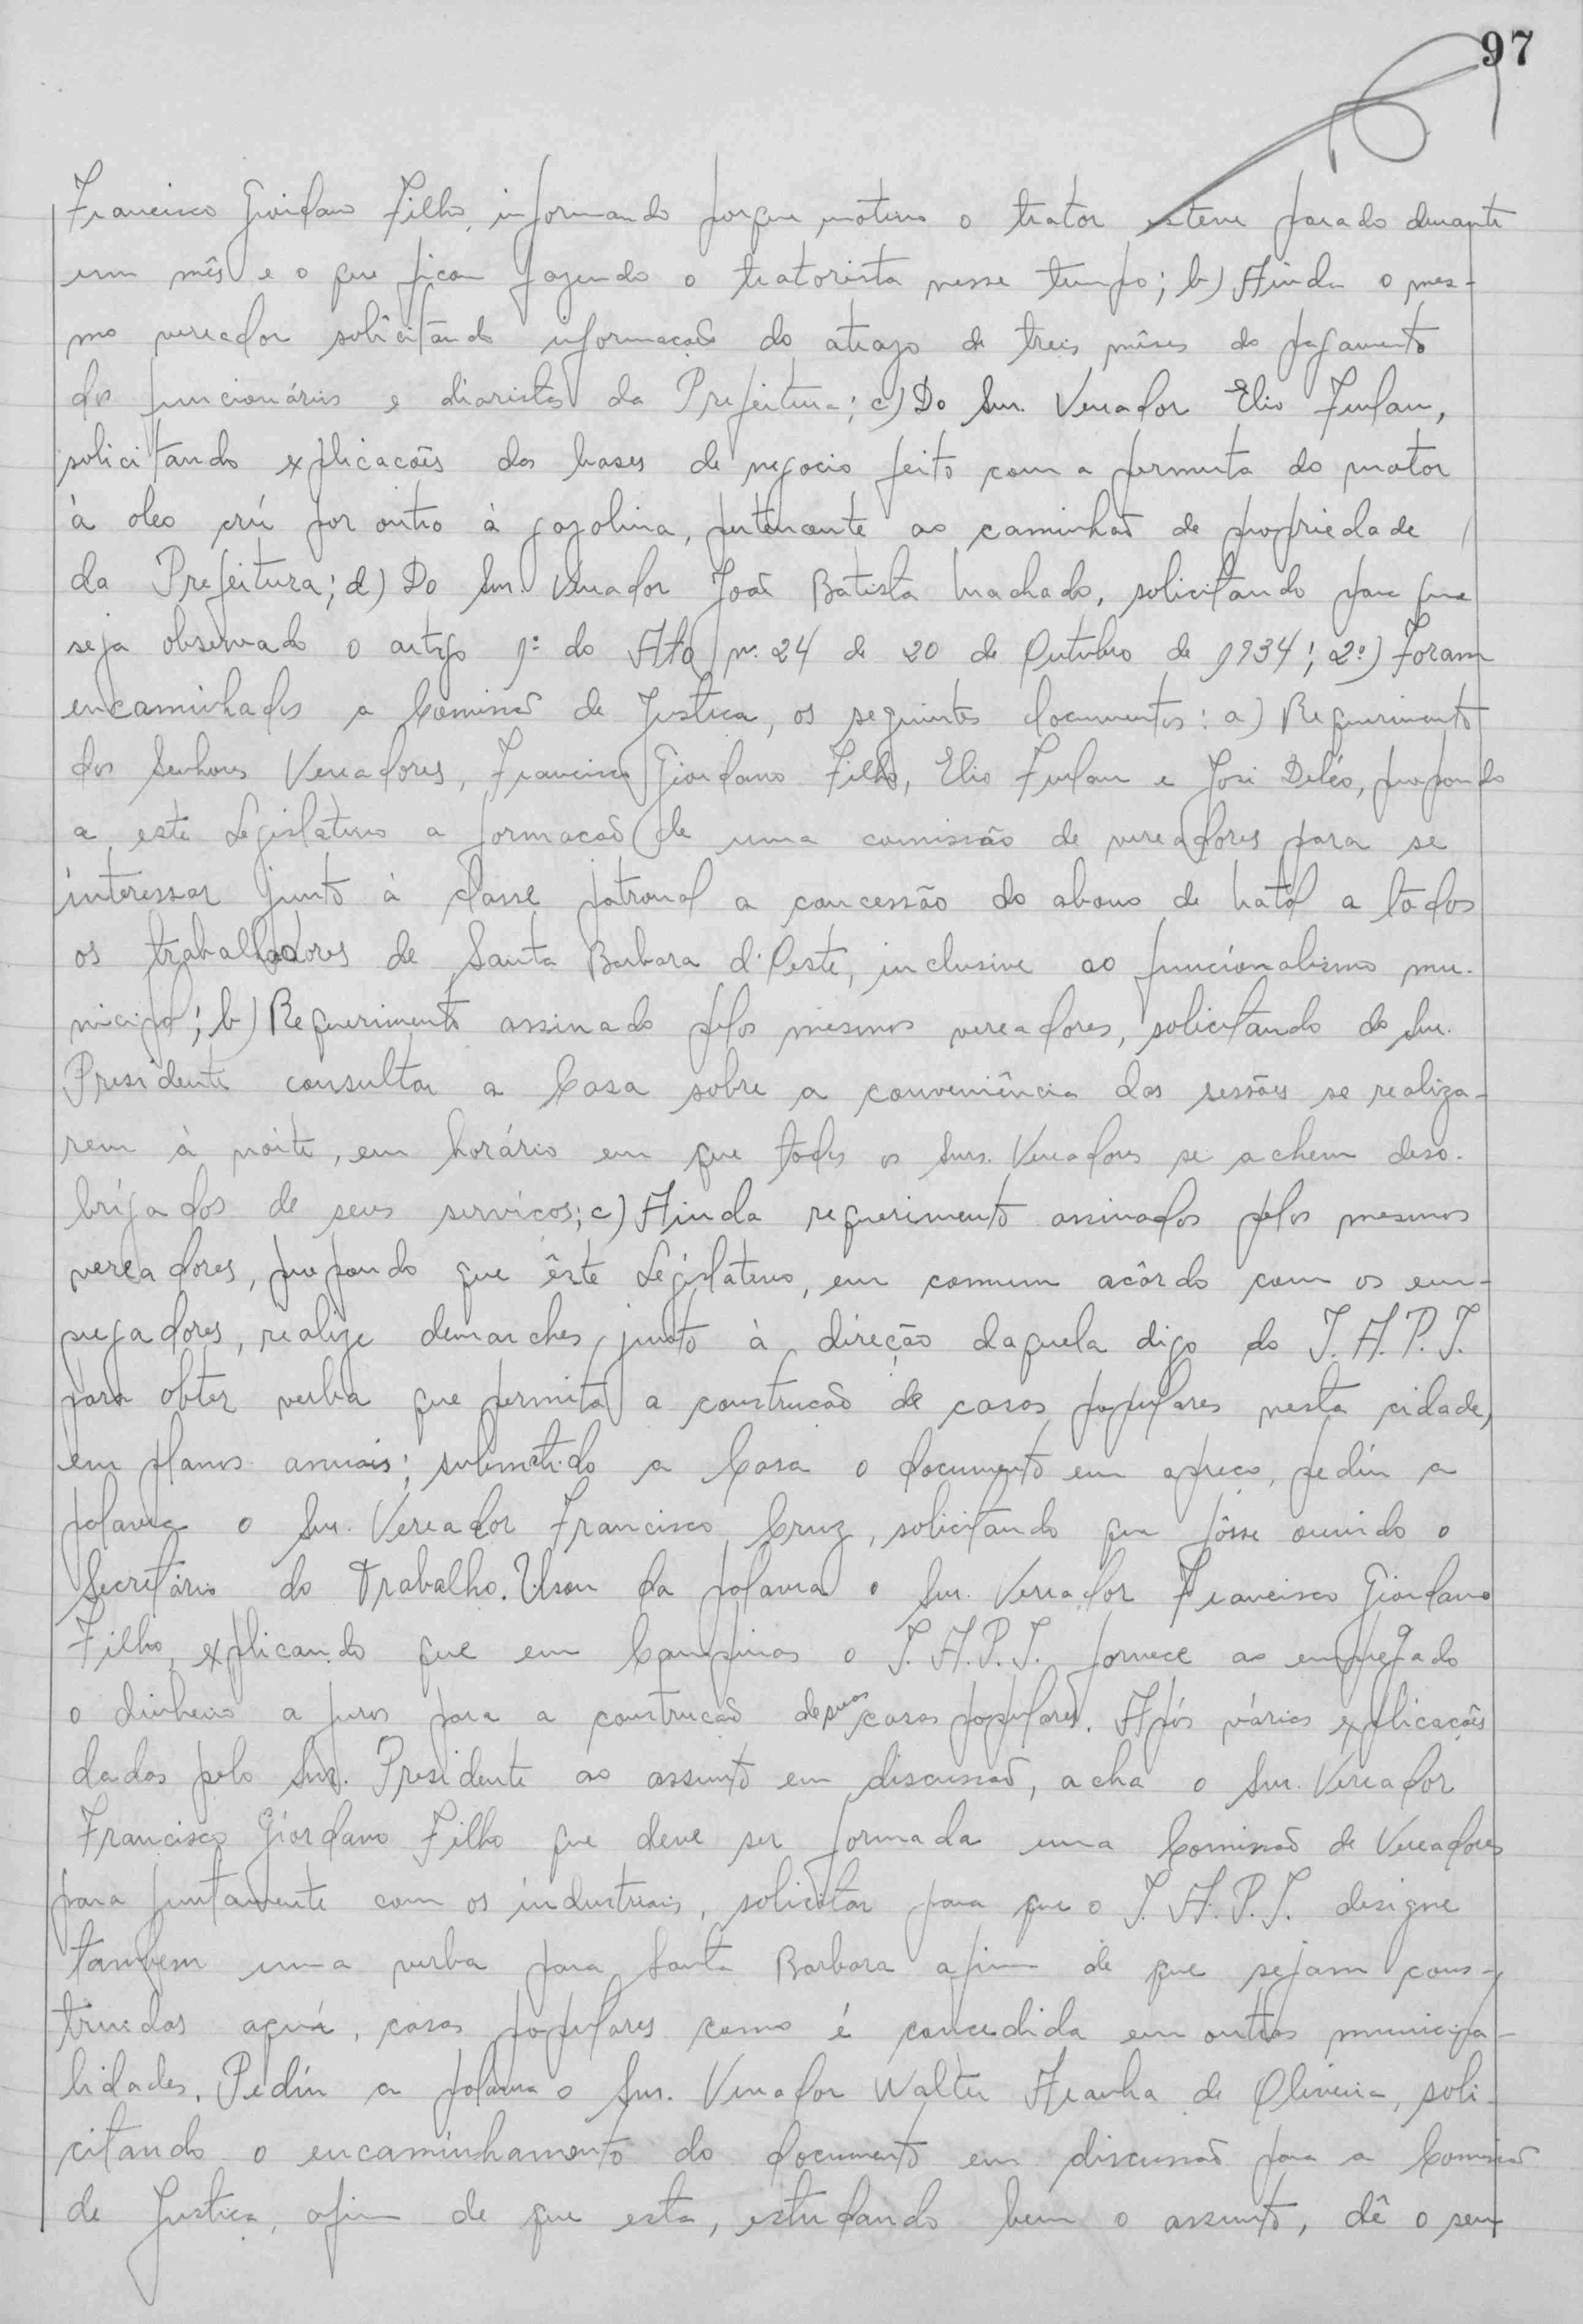 97
Francisco Giordano Filho, informando porque motivo o trator esteve parado durante
um mês e o que ficou fazendo o tratorista nesse tempo; b) Ainda o mes-
mo vereador solicitando informação do atrazo de treis mêses do pagamento
dos funcionários e diaristas da Prefeitura; c) Do Snr. Vereador Elio Furlan,
solicitando explicacões das bases de negocio feito com a permuta do motor
à oleo crú por outro à gazolina, pertencente ao caminhão de propriedade
da Prefeitura; d) Do Snr Vereador João Batista Machado, solicitando para que
seja observado o artigo 1º do Ato nº 24 de 20 de Outubro de 1934; 2º) Foram
encaminhados a Comissão de Justica, os seguintes documentos: a) Requerimento
dos Senhores Vereadores, Francisco Giordano Filho, Elio Furlan e José Deléo, propondo
a este Legislativo a formacão de uma comissão de vereadores para se
interessar junto à classe patronal a concessão do abono de Natal a todos
os trabalhadores de Santa Barbara d'Oeste, inclusive ao funcionalismo mu-
nicipal; b) Requerimento assinado pelos mesmos vereadores, solicitando do Snr.
Presidente consultar a Casa sobre a conveniência das sessões se realiza-
rem à noite, em horário em que todos os Snrs. Vereadores se achem deso-
brigados de seus servicos; c) Ainda requerimento assinados pelos mesmos
vereadores, propondo que êste Legislativo, em comum acôrdo com os em-
pregadores, realize demarches junto à direção daquela digo do I.A.P.I.
para obter verba que permita a construcão de casas populares nesta cidade,
em planos anuais; submetido a Casa o documento em apreco, pediu a
palavra o Snr. Vereador Francisco Cruz, solicitando que fôsse ouvido o
Secretário do Trabalho. Usou da palavra o Snr. Vereador Francisco Giordano
Filho, explicando que em Campinas o I.A.P.I. fornece ao empregado
o dinheiro a juros para a construcão de suas casas populares. Após várias explicações
dadas pelo Snr. Presidente ao assunto em discussão, acha o Snr. Vereador
Francisco Giordano Filho que deve ser formada uma Comissão de Vereadores
para juntamente com os industriais, solicitar para que o I.A.P.I. designe
tambem uma verba para Santa Barbara afim de que sejam cons-
truidas aquí, casas populares como é concedida em outras municipa-
lidades. Pediu a palavra o Snr. Vereador Walter Aranha de Oliveira, soli-
citando o encaminhamento do documento em discussão para a Comissão
de Justica, afim de que esta, estudando bem o assunto, dê o seu